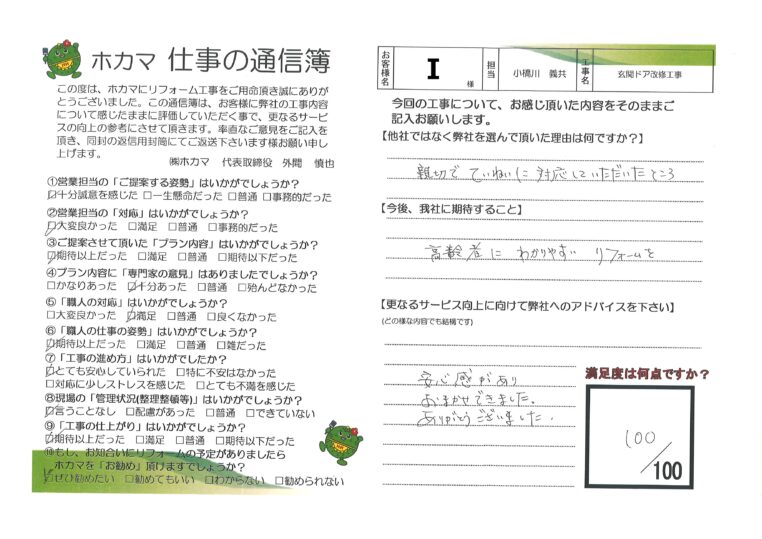 ホカマ 仕事の通信簿
この度は、ホカマにリフォーム工事をご用命頂き誠にありが
とうございました。この通信簿は、お客様に弊社の工事内容
について感じたままに評価していただく事で、更なるサービ
スの向上の参考にさせて頂きます。率直なご意見をご記入を
頂き、同封の返信用封筒にてご返送下さいます様お願い申し
上げます。
㈱ホカマ 代表取締役 外間 慎也
①営業担当の「ご提案する姿勢」はいかがでしょうか?
☑十分誠意を感じた □一生懸命だった □普通 □事務的だった
②営業担当の「対応」はいかがでしょうか?
☑大変良かった □満足 □普通 □事務的だった
③ご提案させて頂いた「プラン内容」はいかがでしょうか?
☑期待以上だった □満足 □普通 □期待以下だった
④プラン内容に「専門家の意見」はありましたでしょうか?
□かなりあった ☑十分あった □普通 □殆んどなかった
⑤「職人の対応」はいかがでしょうか?
□大変良かった ☑満足 □普通 □良くなかった
⑥「職人の仕事の姿勢」はいかがでしょうか?
☑期待以上だった □満足 □普通 □雑だった
⑦「工事の進め方」はいかがでしたか?
☑とても安心していられた □特に不安はなかった
□対応に少しストレスを感じた □とても不満を感じた
⑧現場の「管理状況(整理整頓等)」はいかがでしょうか?
☑言うことなし □配慮があった □普通 □できていない
⑨「工事の仕上がり」はいかがでしょうか?
☑期待以上だった □満足 □普通 □期待以下だった
⑩もし、お知合いにリフォームの予定がありましたら
ホカマを「お勧め」頂けますでしょうか?
☑ぜひ勧めたい □勧めてもいい □わからない □勧められない
お客様名 I 様 担当 小橋川 義共 工事名 玄関ドア改修工事
今回の工事について、お感じ頂いた内容をそのままご
記入お願いします。
【他社ではなく弊社を選んで頂いた理由は何ですか?】
親切で ていねいに 対応していただいたところ
【今後、我社に期待すること】
高齢者に わかりやすい リフォームを
【更なるサービス向上に向けて弊社へのアドバイスを下さい】
(どの様な内容でも結構です)
安心感があり
おまかせできました。
ありがとうございました.
満足度は何点ですか?
100
/100